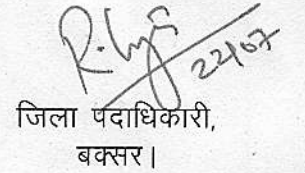 22/07
जिला पदाधिकारी,
बक्सर।